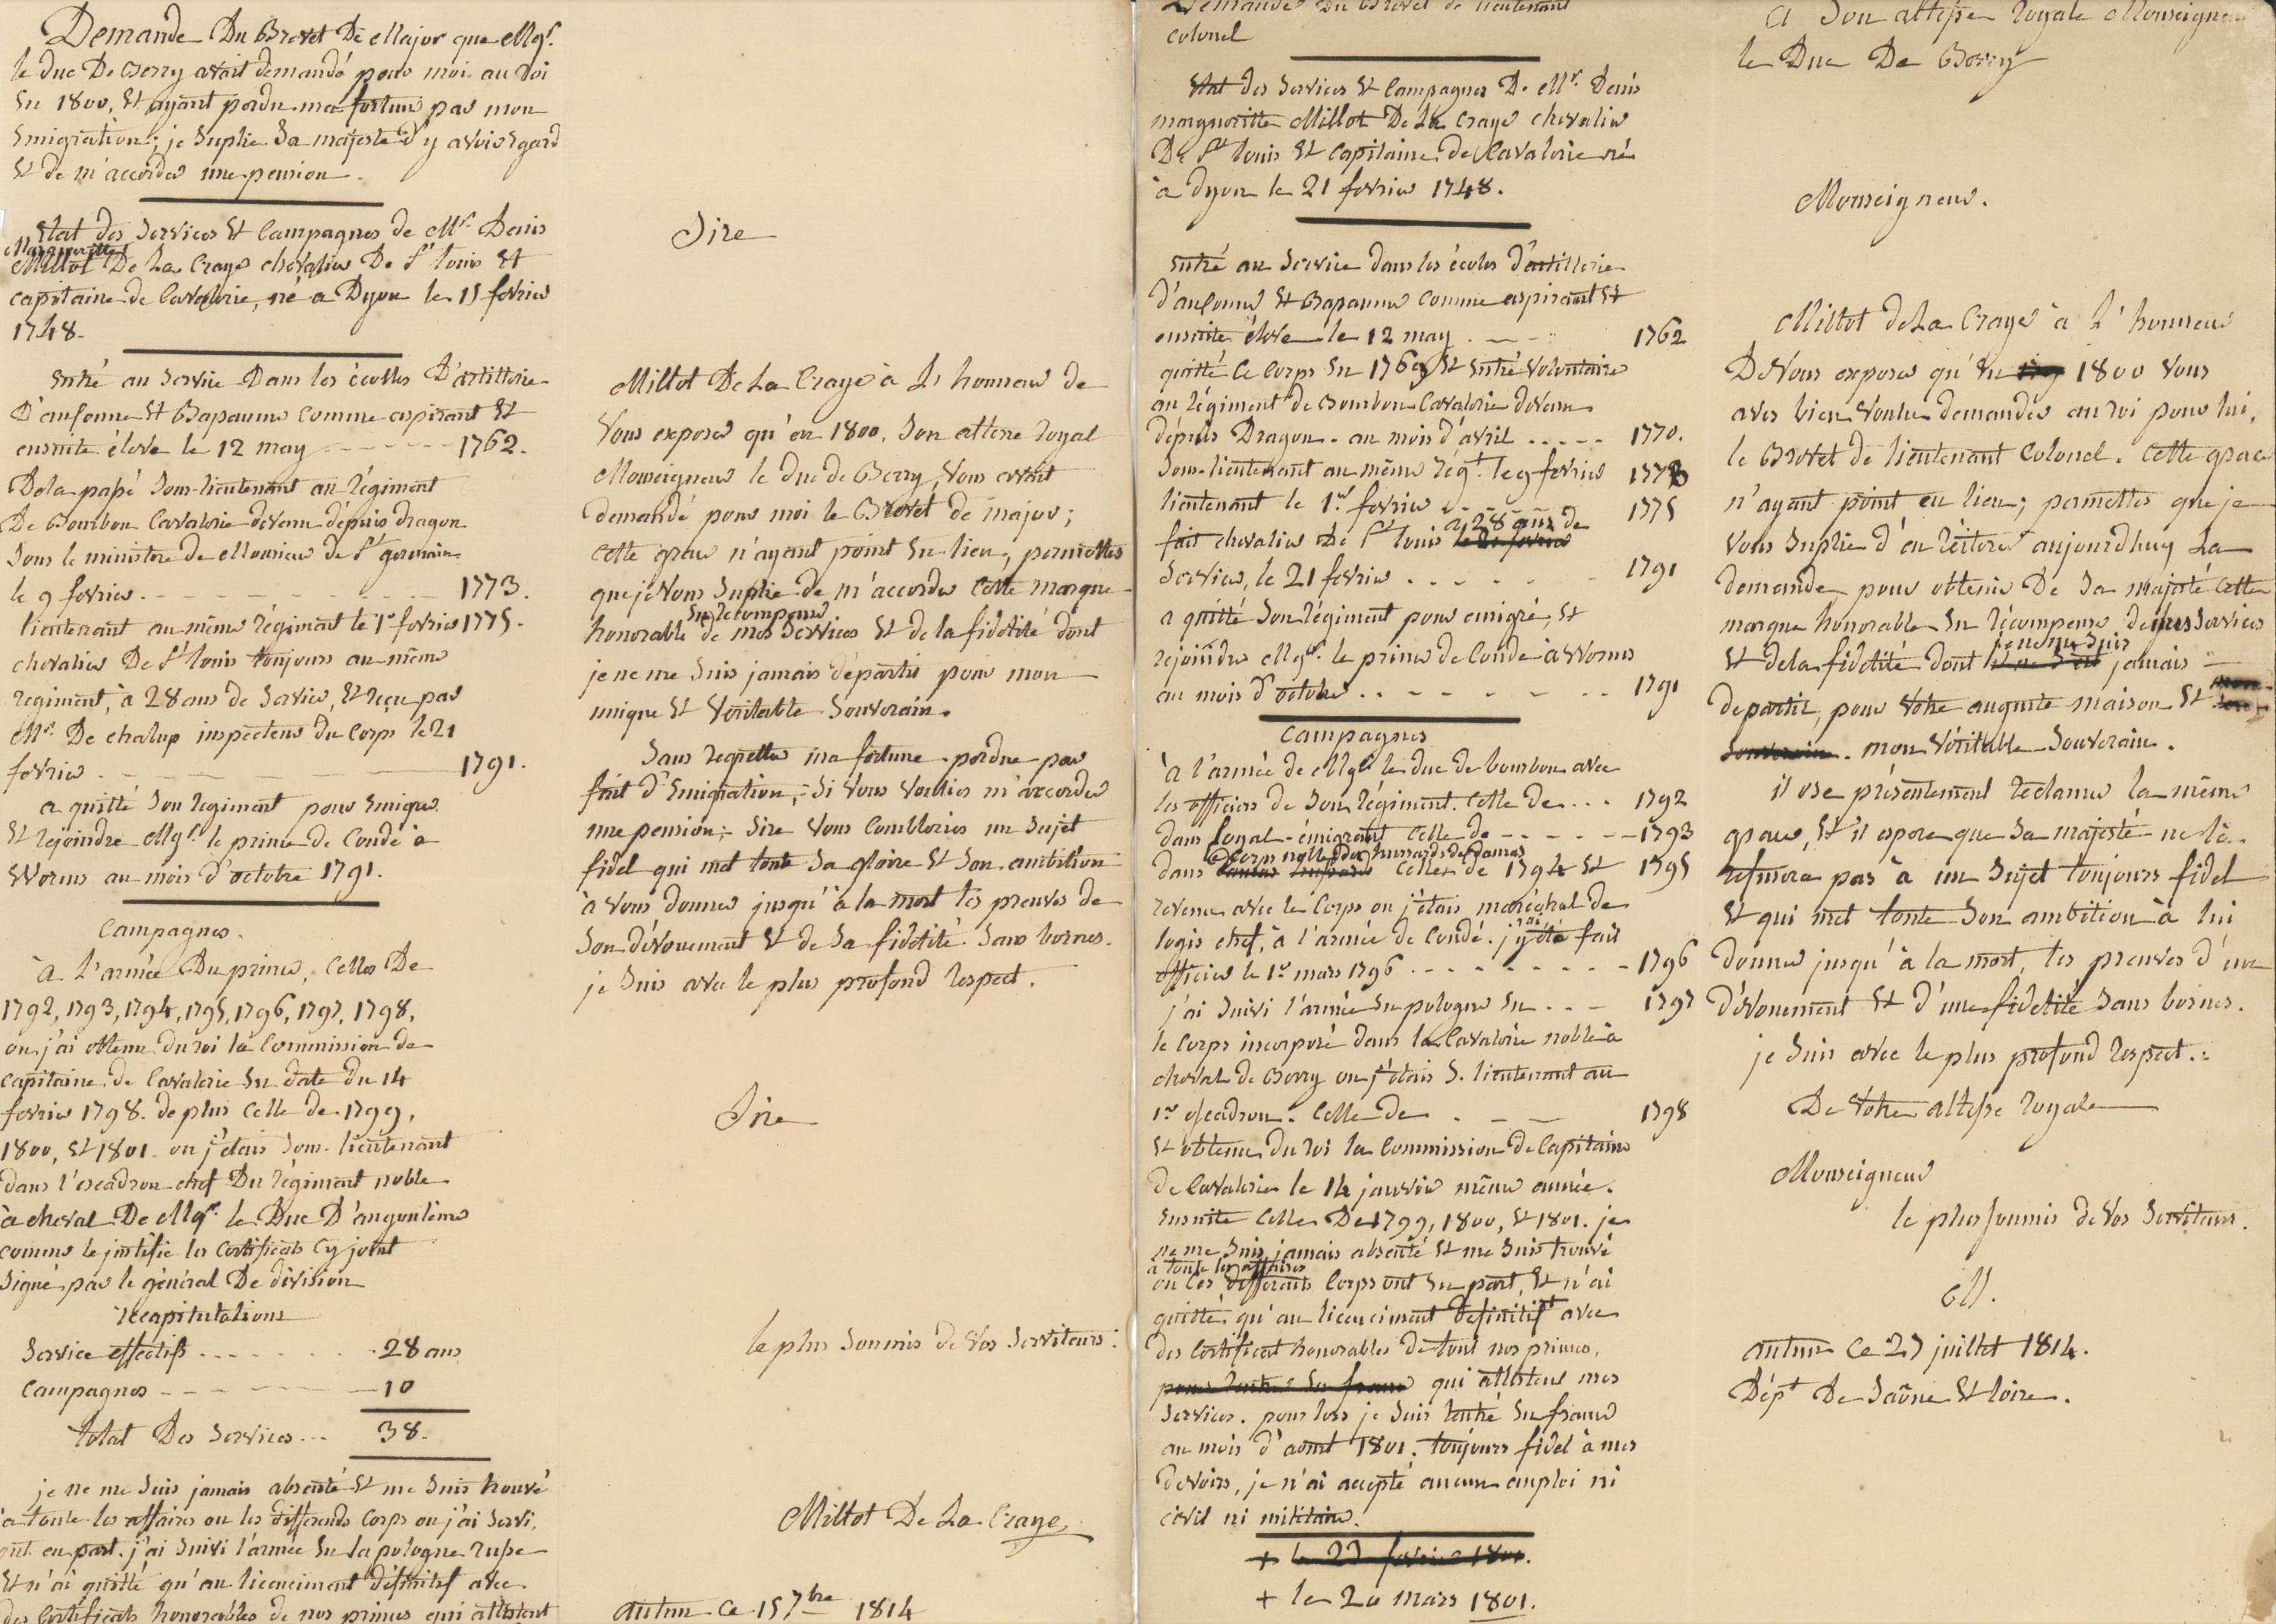 Demande Du Brevet De Major que Mgr.
le duc De Berry avait demandé pour moi au roi
En 1800, Et ayant perdu ma fortune par mon
Emigration; je Suplie Sa majesté d'y avoir Egard
Et de m'accorder une pension.
Etat des Services Et Campagnes de Mr. Denis
Margueritte
Millot De La Craye chevalier De St louis Et
capitaine de Cavalerie, né a Dyon le 15 fevrier
1748.
Entré au Service Dans les écolles D'artillerie
D'aufonne Et Bapaume Comme aspirant Et
ensuite éleve le 12 may - - - - - 1762.
De la passé Sous-lieutenant au régiment
De Bourbon Cavalerie devenu dépuis dragon
Sous le ministere de Monsieur de St germain
le 9 fevrier - - - - - 1773.
lieutenant au même régiment le 1er fevrier 1775.
chevalier De St louis toujours au même
regiment, à 28 ans de Service, Et reçu par
Mr. De chalup inspecteur du Corps le 21
fevrier - - - - - 1791.
a quitté Son regiment pour Emigrer
Et rejoindre Mgr. le prince de Condé à
Worms au mois d'octobre 1791.
Campagnes.
à L'armée Du prince, Celles De
1792, 1793, 1794, 1795, 1796, 1797, 1798,
ou j'ai obtenu du roi la Commission de
Capitaine de Cavalerie En date du 14
fevrier 1798. de plus Celle de 1799,
1800, Et 1801. ou j'étais Sous-lieutenant
dans l'escadron chef Du régiment noble
à cheval De Mgr. le Duc D'angoulème
comme le justifie les Certificats Cy joint
Signé par le général De division
recapitulations
Service effectifs . . . . . 28 ans
Campagnes - - - - 10
total Des Services ... 38.
je ne me Suis jamais absenté Et me Suis trouvé
à toute les affaires ou les differends Corps ou j'ai Servi,
ont eu part. j'ai Suivi l'armée En la pologne russe
Et n'ai quitté qu'au licenciment définitif avec
des Certificats honorables de nos princes qui attestent
Sire
Millot De La Craye à L'honneur de
Vous exposer qu'en 1800, Son altesse royal
Monseigneur le duc de Berry, Vous avait
demandé pour moi le Brevet de major;
Cette grace n'ayant point Eu lieu, permettes
que je Vous Suplie de m'accorder Cette marque
En recompense
honorable de mes Services Et de la fidelité dont
je ne me Suis jamais départit pour mon
unique Et Véritable Souverain.
Sans regretter ma fortune perdue par
fait d'Emigration, Si Vous Vouliez m'accorder
une pension; Sire Vous Combleries un Sujet
fidel qui met toute Sa gloire Et Son ambition
à Vous donner jusqu'à la mort les preuves de
Son dévouement Et de Sa fidelité Sans bornes.
je Suis avec le plus profond respect.
Sire
le plus Soumis de Vos Serviteurs:
Millot De La Craye
autun Ce 15 7bre 1814
Demande Du Brevet de lieutenant
Colonel
Etat des Services Et Campagnes De Mr. Denis
margueritte Millot De La Craye chevalier
De St louis Et Capitaine de Cavalerie né
à dyon le 21 fevrier 1748.
Entré au Service dans les écoles d'artillerie
d'aufonne Et Bapaume Comme aspirant Et
ensuite éleve le 12 may . - - 1762
quitté Ce Corps En 1769 Et Entré Volontaire
au régiment de Bourbon Cavalerie devenu
dépuis Dragon. au mois d'avril ..... 1770.
Sous-lieutenant au même régt. le 9 fevrier 1773
lieutenant le 1er fevrier - - - 1775
à 28 ans de
fait chevalier De St louis le 21 fevrier
Service, le 21 fevrier . . - - - 1791
a quitté Son régiment pour emigré, Et
rejoindre Mgr. le prince de Condé à Worms
au mois d'octobre . . - - - - 1791
Campagnes
à l'armée de Mgr le duc de bourbon avec
les officiers de Son régiment. Celle de ... 1792
dans loyal-émigrant Celle de - - - - 1793
le Corps noble des hussards de damas
dans damas hussard Celles de 1794 Et 1795
revenu avec le Corps ou j'étais maréchal de
logis chef, à l'armée de Condé. j'y ai été fait
officier le 1er mars 1796 - - - - - 1796
j'ai Suivi l'armée En pologne En . . - 1797
le Corps incorporé dans la Cavalerie noble à
cheval de Berry ou j'étais S. lieutenant au
1er escadron. Celle de . - - 1798
Et obtenu du roi la Commission de Capitaine
de Cavalerie le 14 janvier même année.
Ensuite Celles De 1799, 1800, Et 1801. je
ne me Suis jamais absenté Et me Suis trouvé
à toute les affaires
ou Ces differents Corps ont Eu part, Et n'ai
quitté qu'au licenciment definitif avec
des Certificat honorables de tout nos princes,
pour rentrer En france qui attestent mes
Services. pour lors je Suis rentré En france
au mois d'aoust 1801. toujours fidel à mes
devoirs, je n'ai accepté aucun emploi ni
civil ni militaire.
+ le 23 fevrier 1801.
+ le 20 mars 1801.
A Son altesse royale Monseigneur
le Duc De Berry
Monseigneur.
Millot de La Craye à L'honneur
De Vous exposer qu'En 1800 Vous
aves bien Voulu demander au roi pour lui,
le Brevet de lieutenant Colonel. Cette grace
n'ayant point eu lieu; permettes que je
Vous Suplie d'en réiterer aujourdhuy La
demande pour obtenir De Sa majesté Cette
marque honorable En récompense de mes Services
je ne me Suis
Et de la fidelité dont il ne S'est jamais
departit, pour Votre auguste maison Et mon
Souverain. mon Véritable Souverain.
il ose présentement reclamer la même
grace, Et il espere que Sa majesté ne la
refusera pas à un Sujet toujours fidel
Et qui met toute Son ambition à lui
donner jusqu'à la mort, les preuves d'un
dévouement Et d'une fidelité Sans bornes.
je Suis avec le plus profond respect.
De Votre altesse royale
Monseigneur
le plus Soumis de Vos Serviteurs.
M.
autun Ce 27 juillet 1814.
Dépt De Saône Et loire.